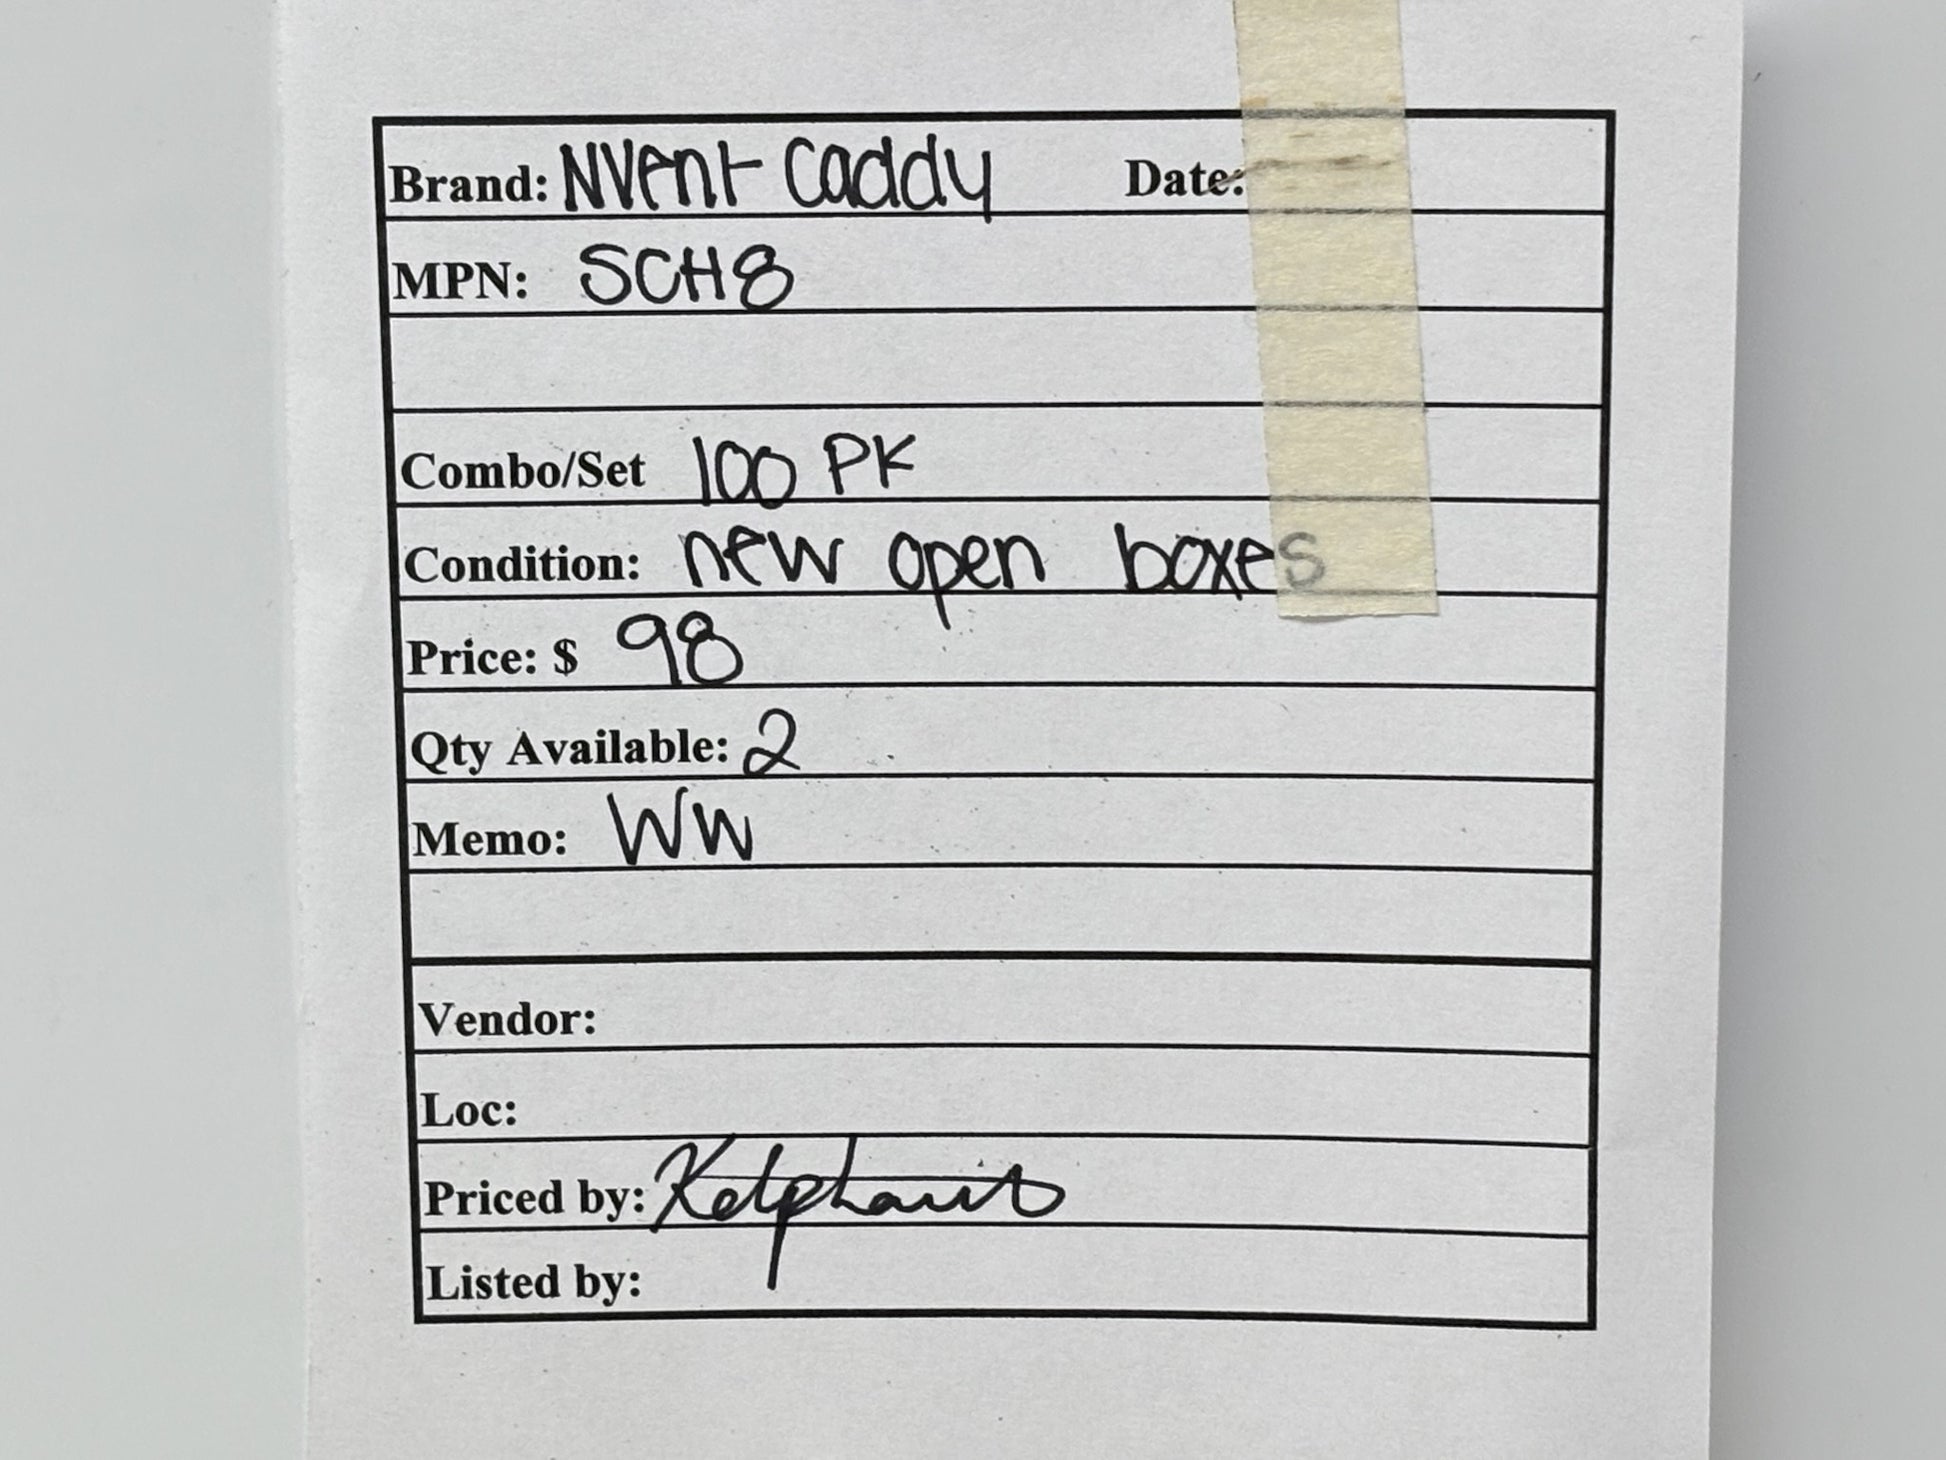 Brand: NVent Caddy Date:
MPN: SCH8
Combo/Set 100 PK
Condition: new open boxes
Price: $ 98
Qty Available: 2
Memo: WW
Vendor:
Loc:
Priced by:
Listed by: